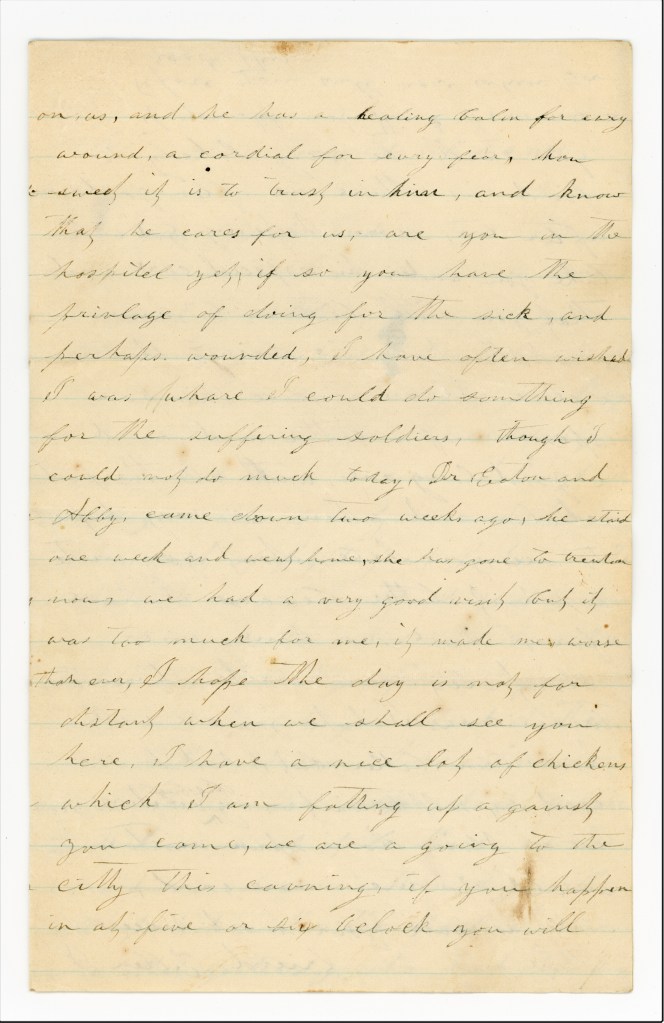 on us, and he has a healing balm for evry
wound, a cordial for evry fear, how
sweet it is to trust in him, and know
that he cares for us, are you in the
hospitel yet, if so you have the
privlage of doing for the sick, and
perhaps wounded, I have often wished
I was whare I could do something
for the suffering soldiers, though I
could not do much today, Dr Eaton and
Abby, came down two weeks ago, he staid
one week and went home, she has gone to trenton
now, we had a very good visit but it
was too much for me, it made me worse
than ever, I hope the day is not far
distant when we shall see you
here, I have a nice lot of chickens
which I am fatting up a gainst
you come, we are a going to the
citty this eavning, if you happen
in at five or six Oclock you will